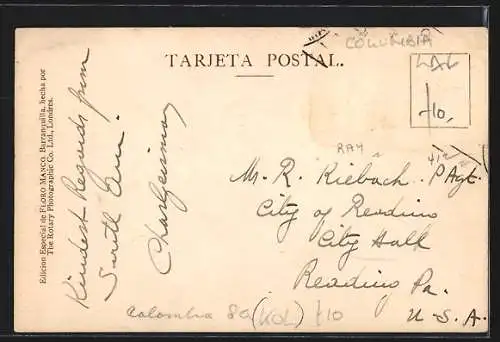 COLUMBIA
TARJETA POSTAL.
-10,
Edicion Especial de FLORO MANCO, Barranquilla, hecha por
The Rotary Photographic Co. Ltd., Londres.
Kindest Regards from
South Am.
RAY
M. R. Riebach. P Agt.
City of Reading
City Hall
Reading Pa.
U. S. A.
Colombia 80 (KOL) £10